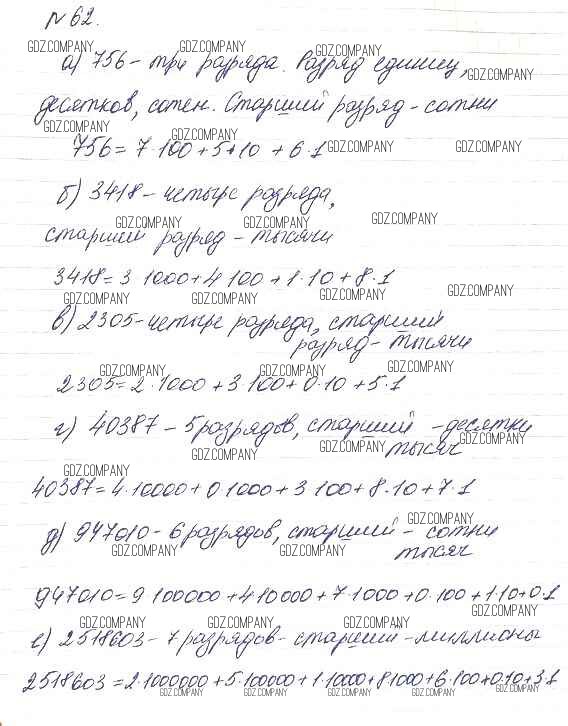 №62.
GDZ.COMPANY GDZ.COMPANY GDZ.COMPANY
а) 756 - три разряда. Разряд единиц,
GDZ.COMPANY
десятков, сотен. Старший разряд - сотни
GDZ.COMPANY GDZ.COMPANY
756 = 7·100 + 5+10 + 6·1 GDZ.COMPANY GDZ.COMPANY
б) 3418 - четыре разряда,
GDZ.COMPANY GDZ.COMPANY GDZ.COMPANY
старший разряд - тысячи
3418 = 3 1000 + 4 100 + 1·10 + 8·1
GDZ.COMPANY GDZ.COMPANY GDZ.COMPANY GDZ.COMPANY
в) 2305 - четыре разряда, старший
разряд - тысячи
GDZ.COMPANY GDZ.COMPANY GDZ.COMPANY
2305 = 2·1000 + 3 100 + 0·10 + 5·1
г) 40387 - 5 разрядов, старший - десятки
тысяч
GDZ.COMPANY GDZ.COMPANY GDZ.COMPANY
GDZ.COMPANY
40387 = 4·10000 + 0 1000 + 3 100 + 8·10 + 7·1
GDZ.COMPANY
д) 947010 - 6 разрядов, старший - сотни
тысяч
GDZ.COMPANY GDZ.COMPANY
947010 = 9 100000 + 4 10000 + 7·1000 + 0·100 + 1·10 + 0·1
GDZ.COMPANY
GDZ.COMPANY GDZ.COMPANY GDZ.COMPANY
е) 2518603 - 7 разрядов - старший - миллионы
2518603 = 2·1000000 + 5·100000 + 1·10000 + 8 1000 + 6·100 + 0·10 + 3·1
GDZ.COMPANY GDZ.COMPANY GDZ.COMPANY GDZ.COMPANY GDZ.COMPANY